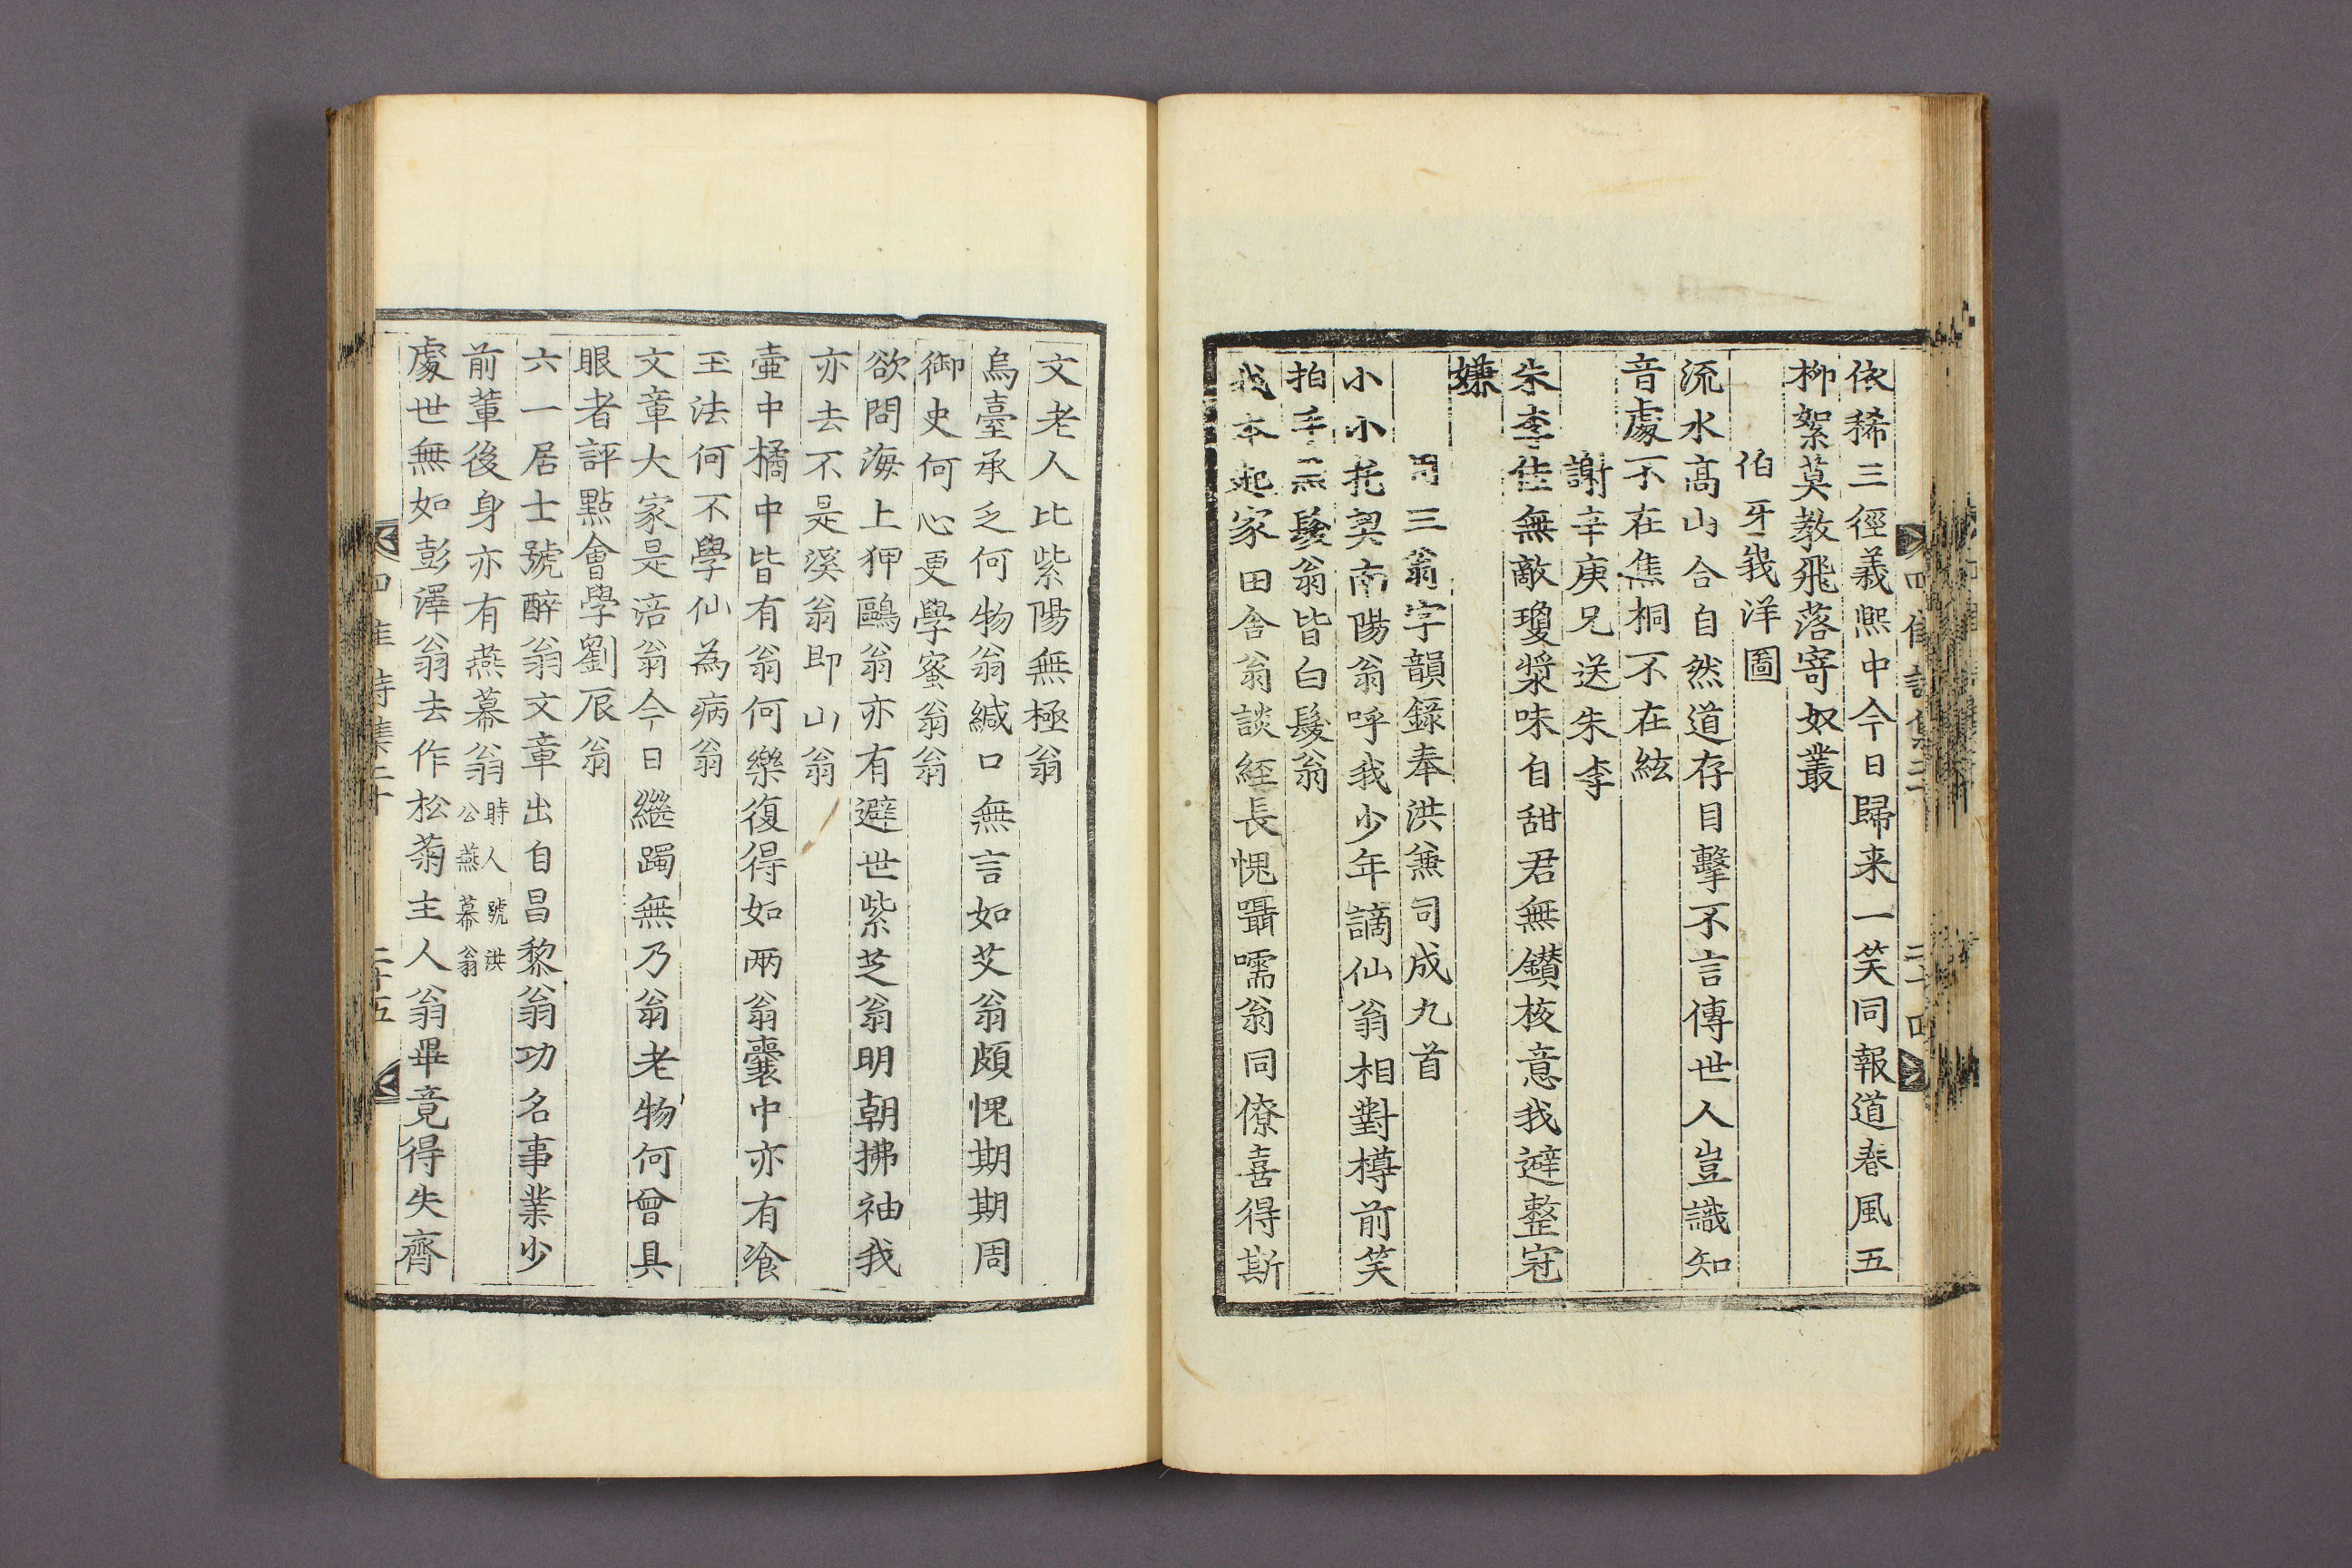 依稀三徑義熈中今日歸来一笑同報道春風五
柳絮莫教飛落寄奴叢
伯牙峩洋圖
流水高山合自然道存目擊不言傳世人豈識知
音處不在焦桐不在絃
謝辛庚兄送朱李
朱李佳無敵瓊漿味自甜君無鑚核意我避整冠
嫌
用三翁字韻錄奉洪兼司成九首
小小托契南陽翁呼我少年謫仙翁相對樽前笑
拍手無髮翁皆白髮翁
我本起家田舍翁談經長愧囁嚅翁同僚喜得斯
文老人比紫陽無極翁
烏臺承乏何物翁緘口無言如艾翁頗愧期期周
御史何心更學蜜翁翁
欲問海上狎鷗翁亦有避世紫芝翁明朝拂袖我
亦去不是溪翁即山翁
壷中橘中皆有翁何樂復得如兩翁囊中亦有飡
玉法何不學仙為病翁
文章大家是涪翁今日繼躅無乃翁老物何曾具
眼者評點會學劉辰翁
六一居士號醉翁文章出自昌黎翁功名事業少
前輩後身亦有燕幕翁時人號洪公燕幕翁
處世無如彭澤翁去作松菊主人翁畢竟得失齊
二十五